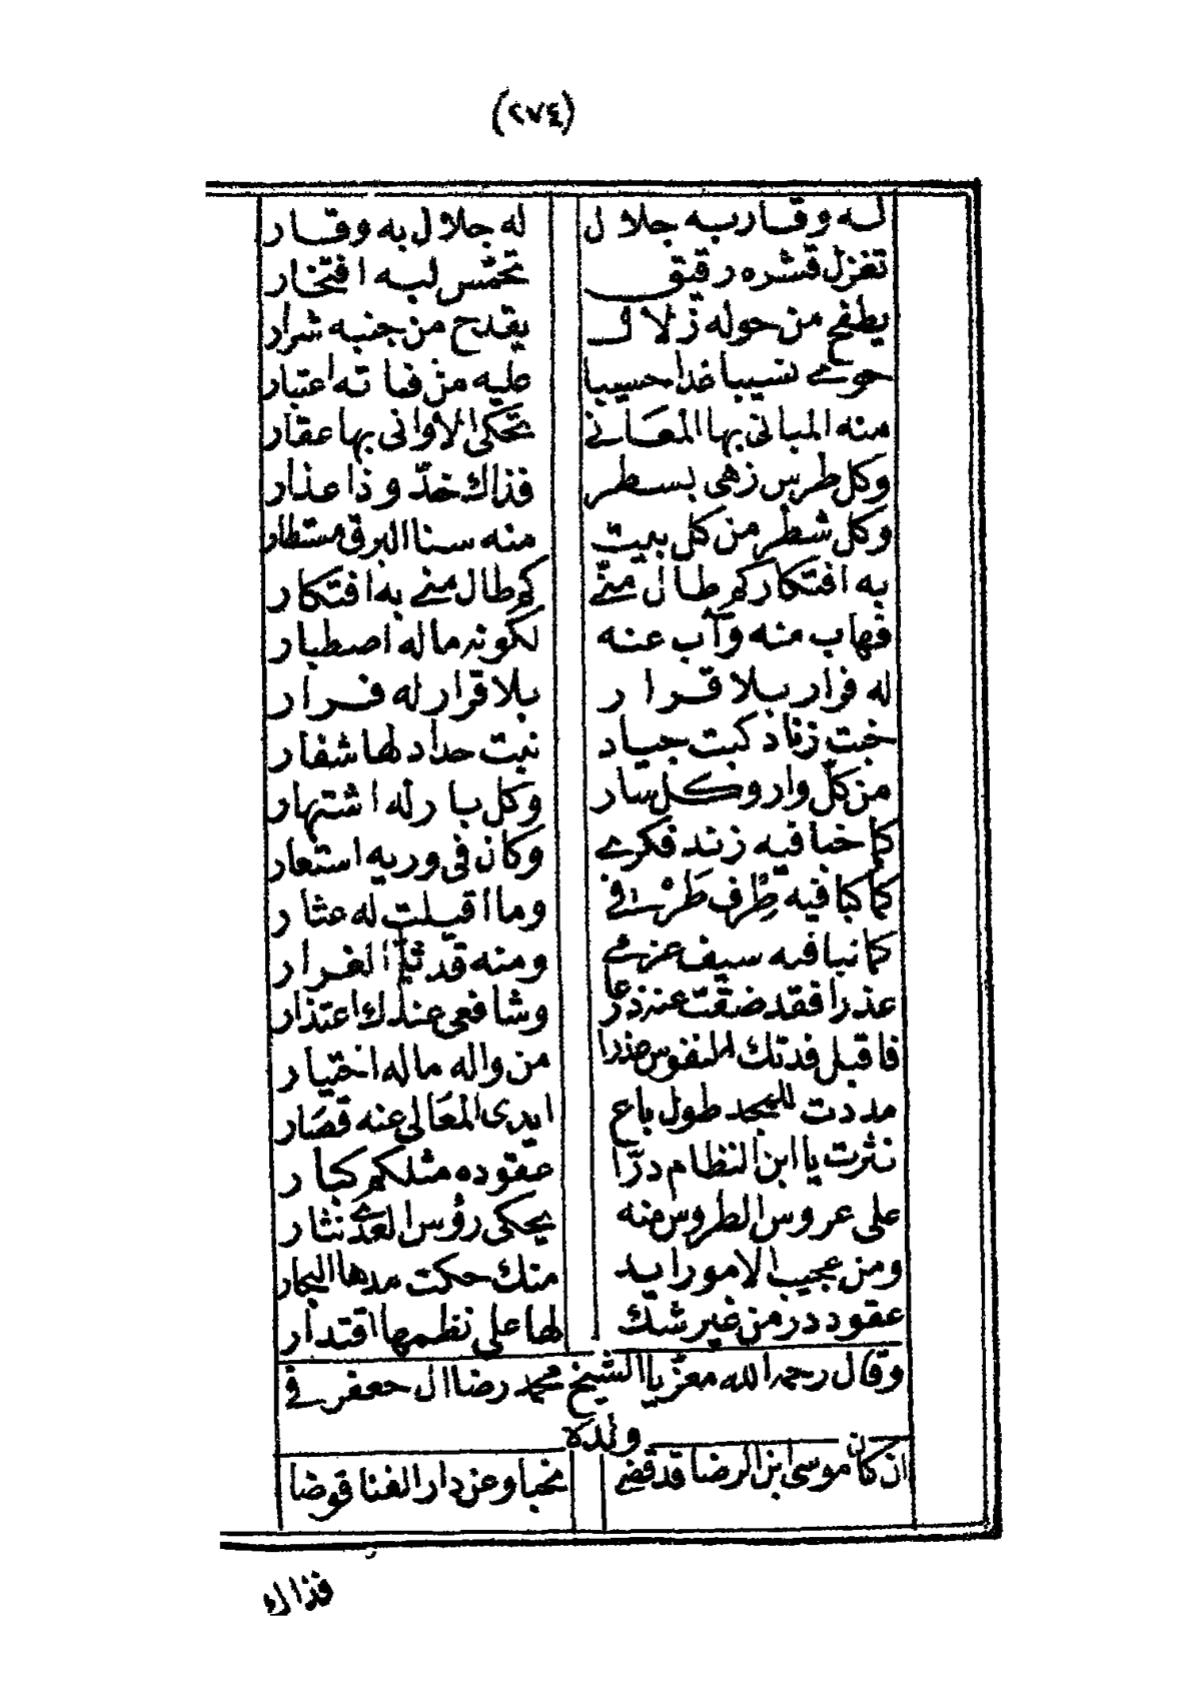 (٢٧٤)
له وقار به جلال له جلال به وقار
تغزل قشره رقيق تحمس لبه افتخار
يطفح من حوله زلال يقدح من جنبه شرار
حوى نسيبا غدا حسيبا عليه من فما ته اعتبار
منه المباني بها المعاني تحكي الاواني بها عقار
وكل طرس زهى بسطر فذاك خدّ وذا عذار
وكل شطر من كل بيت منه سنا البرق مستطار
به افتكار كم طال منّي كم طال مني به افتكار
فهاب منه وآب عنه لكونه ما له اصطبار
له فرار بلا قرار بلا قرار له فرار
خبت زناد كبت جياد نبت حداد لها شفار
من كلّ وار وكل سار وكل بار له اشتهار
كما خبا فيه زند فكري وكان في وريه استعار
كما كبا فيه طِرف طَرفي وما اقيلت له عثار
كما نبا فيه سيف عزمي ومنه قد ثلّم الغرار
عذرا فقد ضقت عنه ذرعا وشافعي عندك اعتذار
فاقبل فدتك النفوس عذرا من واله ما له اختيار
مددت للمجد طول باع ايدى المعَالي عنه قصَار
نثرت يا ابن النظام درّا عقوده مثلكم كبار
على عروس الطروس منه يحكي رؤس العدى نثار
ومن عجيب الامور ايد منك حكت مدها البحار
عقود در من غير شكّ لها على نظمها اقتدار
وقال رحمه الله معزّيا الشيخ محمد رضا ال جعفر في
ولده
ان كان موسى ابن الرضا قد قضى نحبا وعن دار الفنا قوضا
فذاك